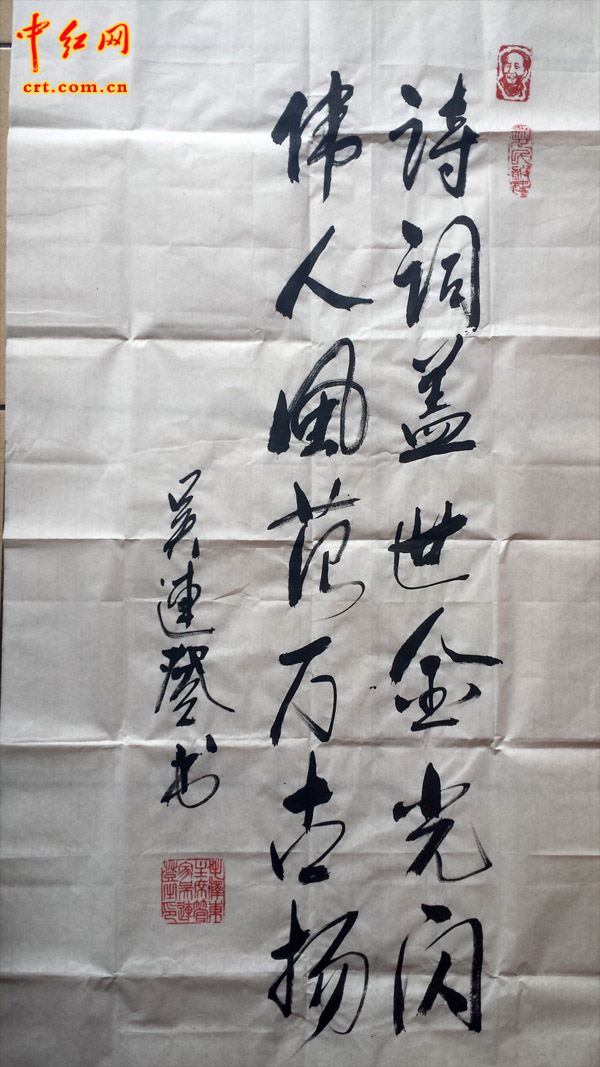 中红网
crt.com.cn
诗词盖世金光闪
伟人風范万古扬
吴連登书
毛澤東
主席管
家吴連